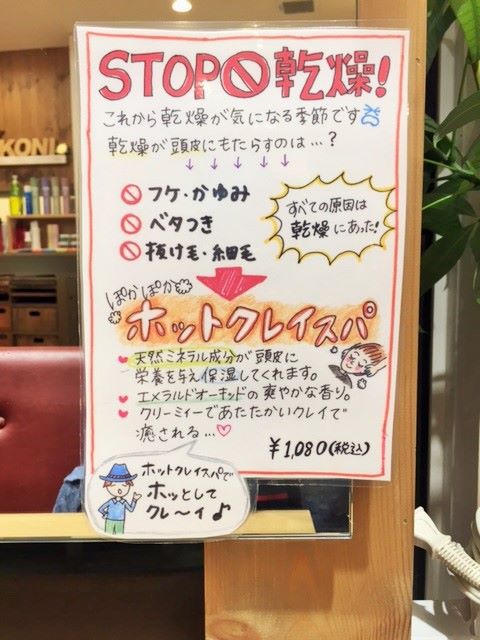 STOP🚫乾燥!
これから乾燥が気になる季節です
乾燥が頭皮にもたらすのは…?
↓ ↓ ↓ ↓ ↓
フケ・かゆみ
ベタつき
抜け毛・細毛
すべての原因は
乾燥にあった!
ぽかぽか
ホットクレイスパ
天然ミネラル成分が頭皮に
栄養を与え保湿してくれます。
エメラルドオーキッドの爽やかな香り。
クリーミィーであたたかいクレイで
癒される…♡
¥1,080(税込)
ホットクレイスパで
ホッとして
クレ〜イ♪
KONI